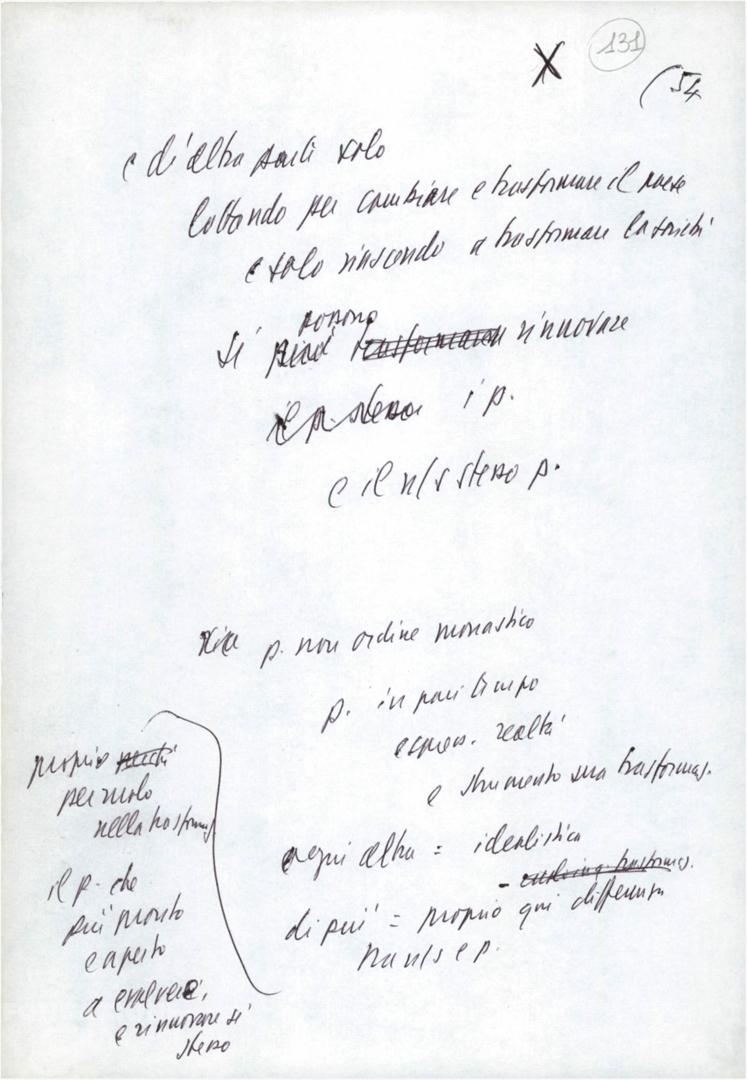 X 131
(54
e d'altra parte solo
lottando per cambiare e trasformare il paese
e solo riuscendo a trasformare la società
possono
si può trasformare rinnovare
il p. stesso i p.
e il n/s stesso p.
p. non ordine monastico
p. in pari tempo
espres. realtà
e strumento sua trasformaz.
ogni altra = idealistica
di più = proprio qui differenza
tra n/s e p.
proprio
per ruolo
nella trasformaz
il p. che
più pronto
e aperto
a evolvere,
e rinnovare sé
stesso